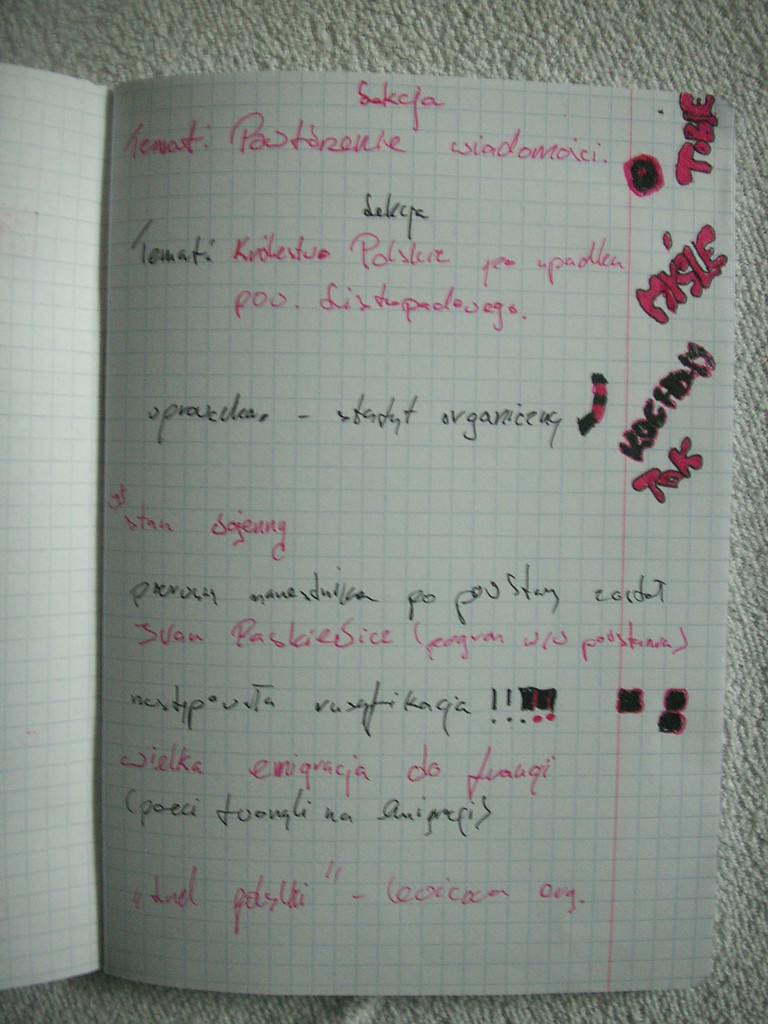 Lekcja
Temat: Powtórzenie wiadomości.
Lekcja
Temat: Królestwo Polskie po upadku
pow. Listopadowego.
- statut organiczny
stan wojenny
po powstaniu został
Iwan Paskiewicz (pogrom w/w powstania)
nastąpowała rusyfikacja !!!!!
wielka emigracja do francji
(poeci tworzyli na emigracji)
„Lud polski" - org.
TOBIE
MYŚLĘ
KOCHANY
TAK